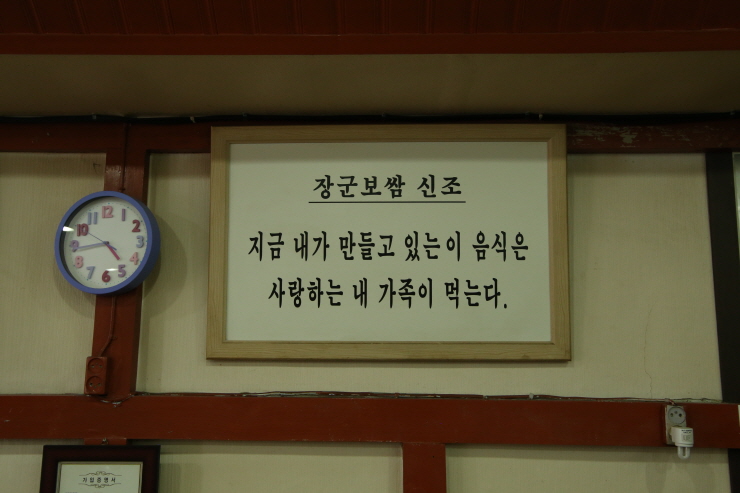 장군보쌈 신조
지금 내가 만들고 있는 이 음식은
사랑하는 내 가족이 먹는다.
12
1
2
3
4
5
6
7
8
9
10
11